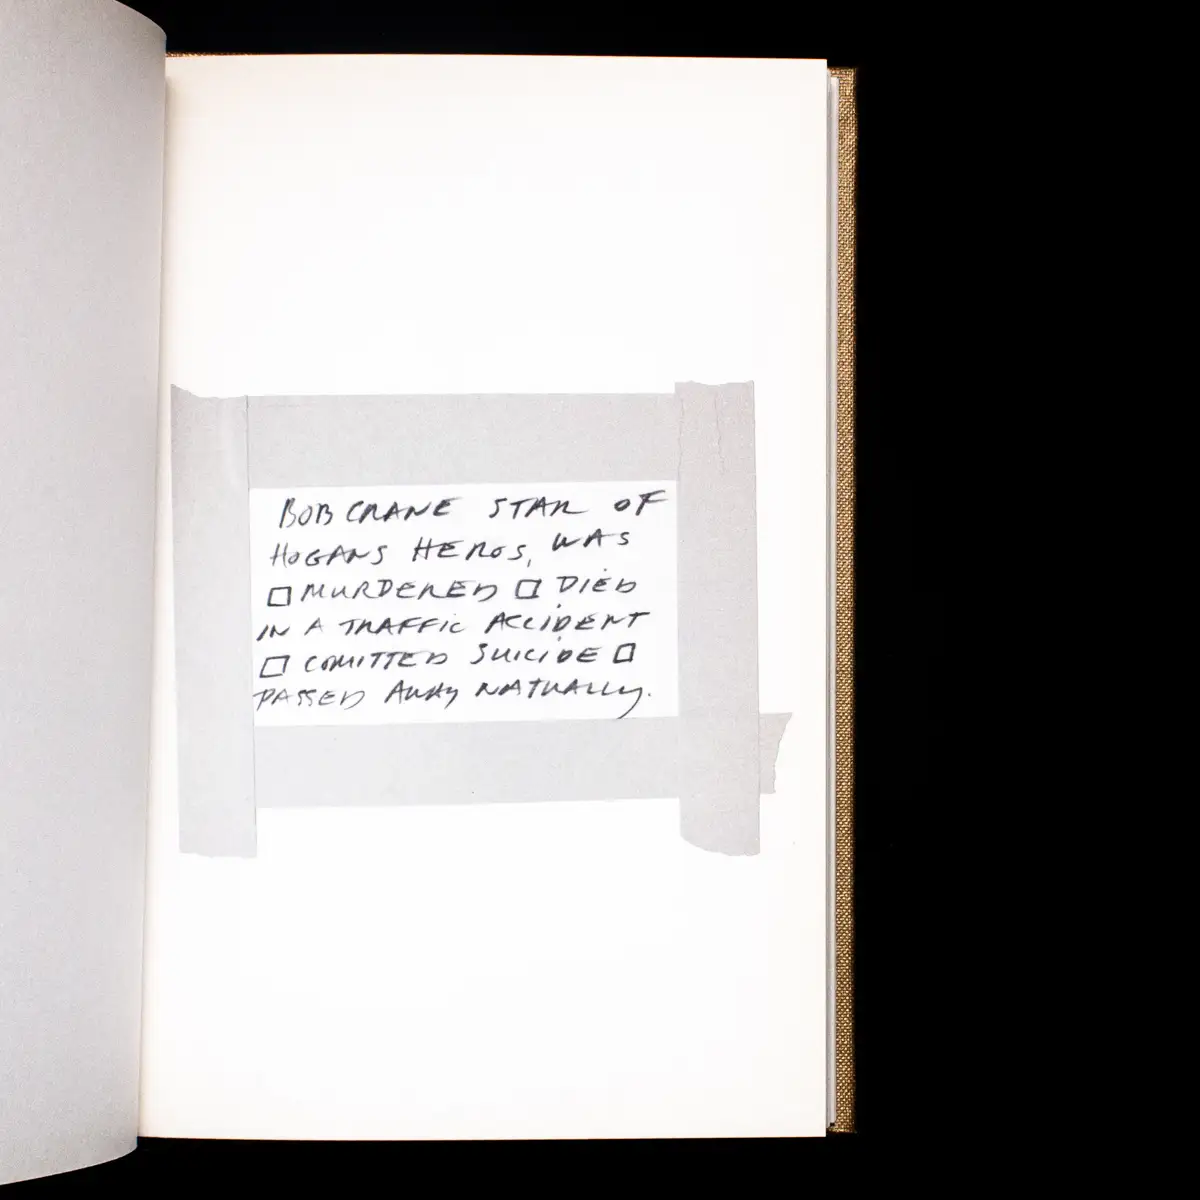 BOB CRANE STAR OF
HOGANS HEROS, WAS
☐ MURDERED ☐ DIED
IN A TRAFFIC ACCIDENT
☐ COMITTED SUICIDE ☐
PASSED AWAY NATUALLY.